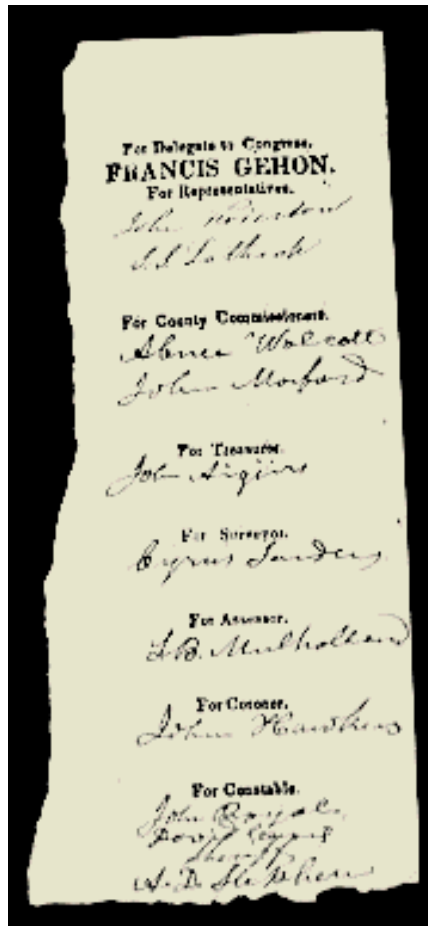 For Delegate to Congress,
FRANCIS GEHON.
For Representatives.
John
For County Commissioners.
Abner Wolcott
John Morford
For Treasurer.
John
For Surveyor.
Cyrus Sanders
For Assessor.
B. Mulholland
For Coroner.
John Hawkins
For Constable.
John Royal
Sheriff
A. D. Stephen